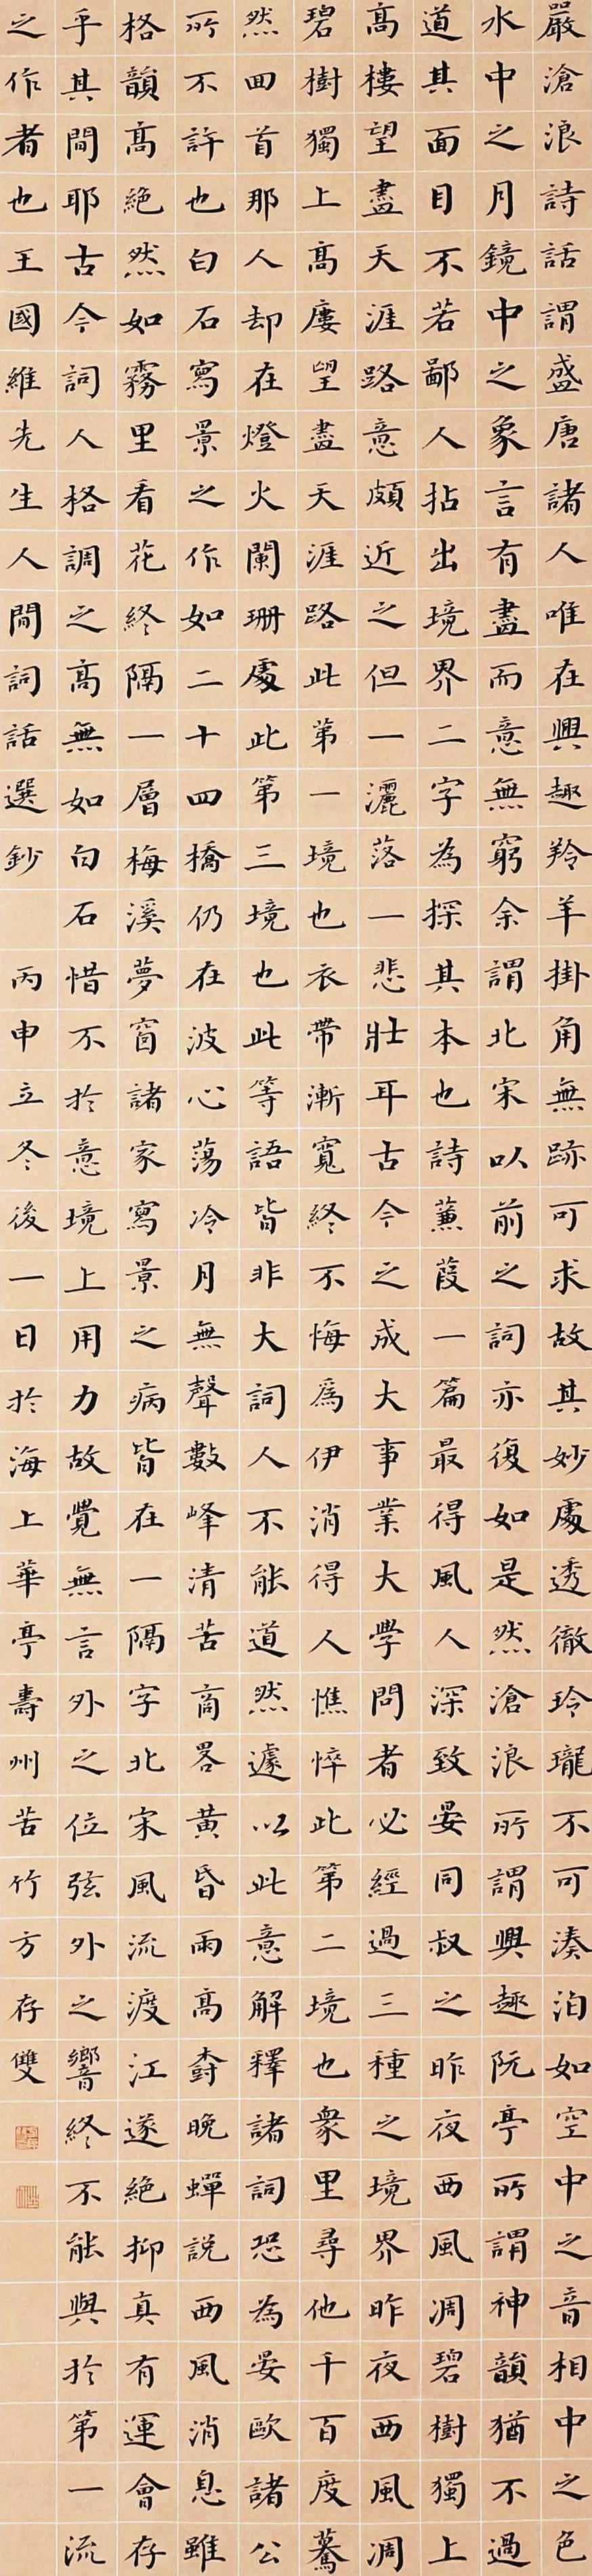 嚴滄浪詩話謂盛唐諸人唯在興趣羚羊掛角無跡可求故其妙處透徹玲瓏不可湊泊如空中之音相中之色
水中之月鏡中之象言有盡而意無窮余謂北宋以前之詞亦復如是然滄浪所謂興趣阮亭所謂神韻猶不過
道其面目不若鄙人拈出境界二字為探其本也詩蒹葭一篇最得風人深致晏同叔之昨夜西風凋碧樹獨上
高樓望盡天涯路意頗近之但一灑落一悲壯耳古今之成大事業大學問者必經過三種之境界昨夜西風凋
碧樹獨上高廔望盡天涯路此第一境也衣帶漸寬終不悔爲伊消得人憔悴此第二境也衆里尋他千百度驀
然回首那人却在燈火闌珊處此第三境也此等語皆非大詞人不能道然遽以此意解釋諸詞恐為晏歐諸公
所不許也白石寫景之作如二十四橋仍在波心蕩冷月無聲數峰清苦商畧黃昏雨高樹晚蟬說西風消息雖
格韻高絕然如霧里看花終隔一層梅溪夢窗諸家寫景之病皆在一隔字北宋風流渡江遂絕抑真有運會存
乎其間耶古今詞人格調之高無如白石惜不於意境上用力故覺無言外之位弦外之響終不能與於第一流
之作者也王國維先生人間詞話選鈔 丙申立冬後一日於海上華亭壽州苦竹方存雙